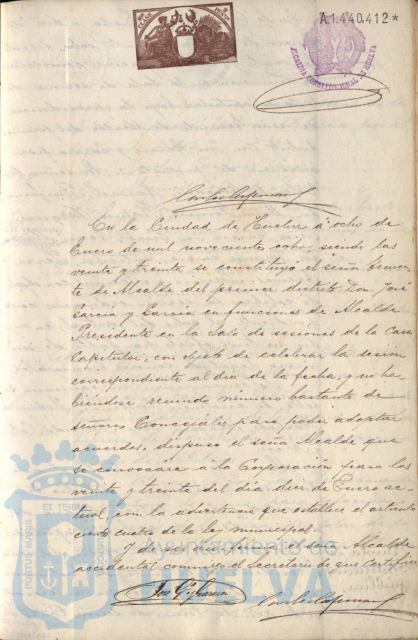 A1.440.412*
ALCALDIA CONSTITUCIONAL DE HUELVA
En la Ciudad de Huelva á ocho de
Enero de mil novecientos ocho, siendo las
veinte y treinta, se constituyó el señor Tenien-
te de Alcalde del primer distrito Don José
García y García en funciones de Alcalde
Presidente en la Sala de sesiones de la Casa
Capitular, con objeto de celebrar la sesión
correspondiente al día de la fecha, y no ha-
biéndose reunido número bastante de
señores Concejales para poder adoptar
acuerdos, dispuso el señor Alcalde que
se convocara á la Corporación para las
veinte y treinta del día diez de Enero ac-
tual, con la advertencia que establece el artículo
ciento cuatro de la ley municipal.
Y de ser así firma el señor Alcalde
accidental conmigo el Secretario de que certifico
José Gª García
PORTUS MARIS ET TERRAE
Ayuntamiento de
HUELVA